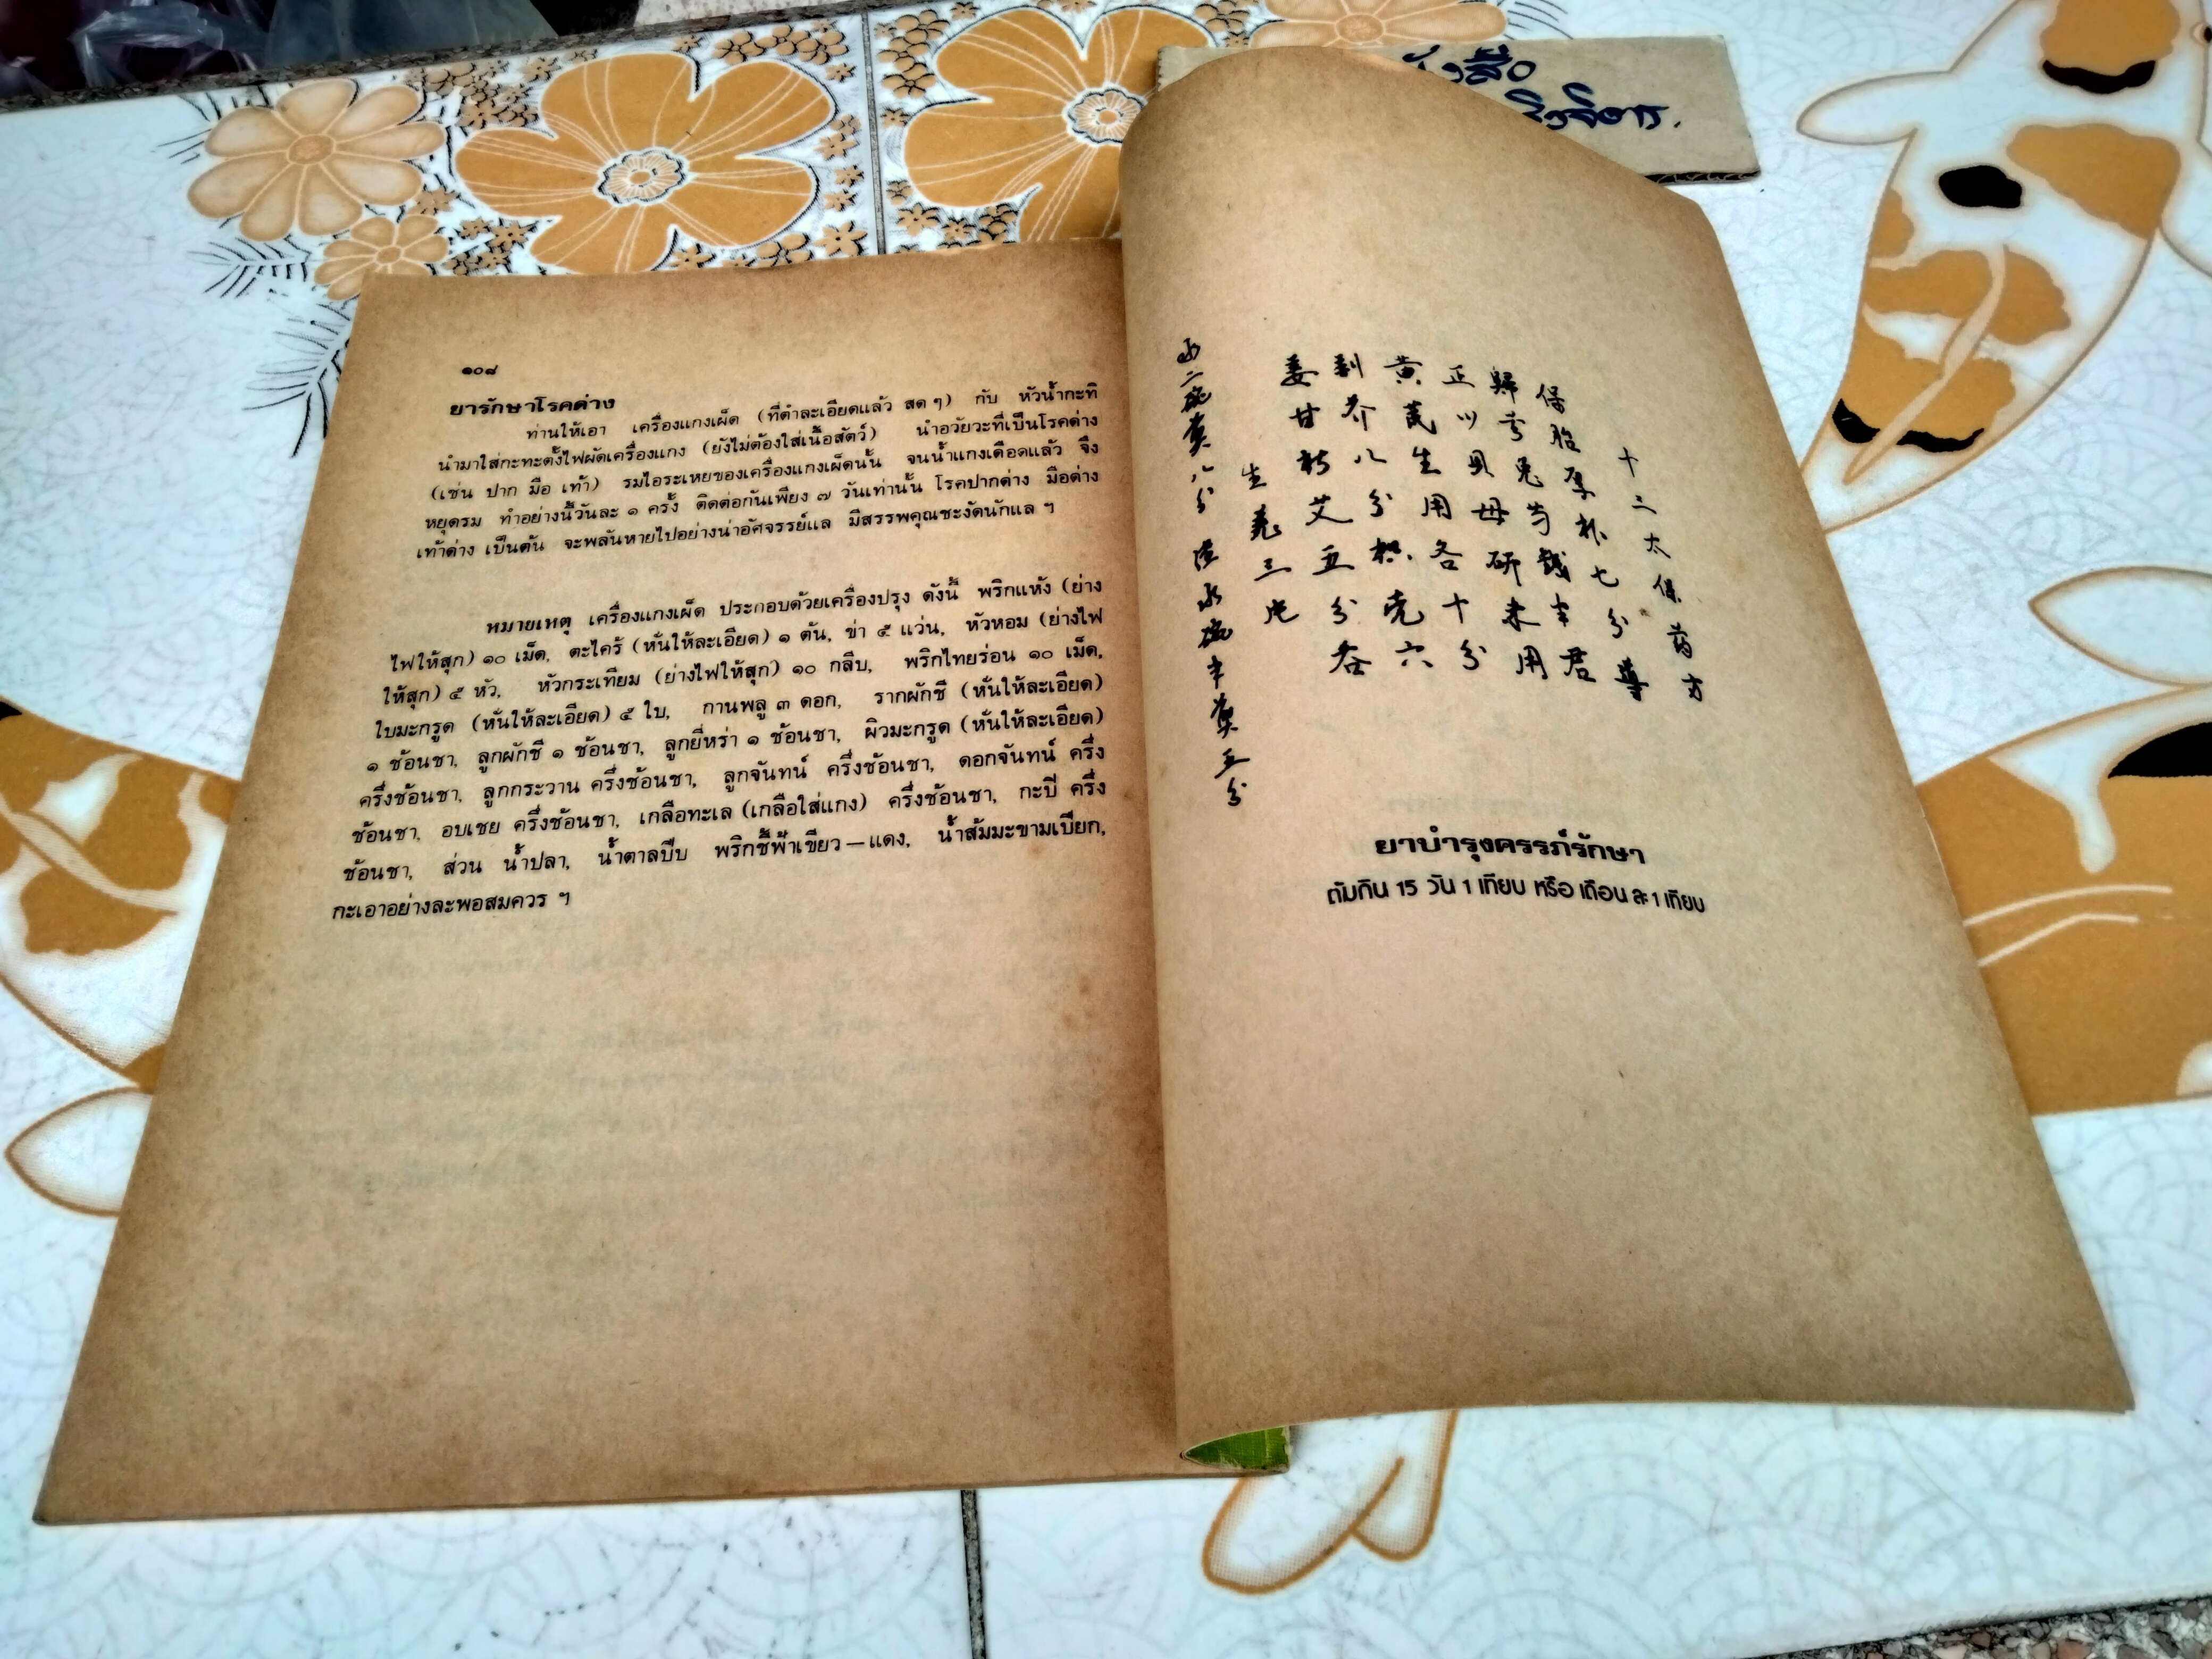 ๑๐๘
ยารักษาโรคด่าง
ท่านให้เอา เครื่องแกงเผ็ด (ที่ตำละเอียดแล้ว สด ๆ) กับ หัวน้ำกะทิ
นำมาใส่กะทะตั้งไฟผัดเครื่องแกง (ยังไม่ต้องใส่เนื้อสัตว์) นำอวัยวะที่เป็นโรคด่าง
(เช่น ปาก มือ เท้า) รมไอระเหยของเครื่องแกงเผ็ดนั้น จนน้ำแกงเดือดแล้ว จึง
หยุดรม ทำอย่างนี้วันละ ๑ ครั้ง ติดต่อกันเพียง ๗ วันเท่านั้น โรคปากด่าง มือด่าง
เท้าด่าง เป็นต้น จะพลันหายไปอย่างน่าอัศจรรย์แล มีสรรพคุณชะงัดนักแล ฯ
หมายเหตุ เครื่องแกงเผ็ด ประกอบด้วยเครื่องปรุง ดังนี้ พริกแห้ง (ย่าง
ไฟให้สุก) ๑๐ เม็ด, ตะไคร้ (หั่นให้ละเอียด) ๑ ต้น, ข่า ๕ แว่น, หัวหอม (ย่างไฟ
ให้สุก) ๕ หัว, หัวกระเทียม (ย่างไฟให้สุก) ๑๐ กลีบ, พริกไทยร่อน ๑๐ เม็ด,
ใบมะกรูด (หั่นให้ละเอียด) ๕ ใบ, กานพลู ๓ ดอก, รากผักชี (หั่นให้ละเอียด)
๑ ช้อนชา, ลูกผักชี ๑ ช้อนชา, ลูกยี่หร่า ๑ ช้อนชา, ผิวมะกรูด (หั่นให้ละเอียด)
ครึ่งช้อนชา, ลูกกระวาน ครึ่งช้อนชา, ลูกจันทน์ ครึ่งช้อนชา, ดอกจันทน์ ครึ่ง
ช้อนชา, อบเชย ครึ่งช้อนชา, เกลือทะเล (เกลือใส่แกง) ครึ่งช้อนชา, กะปิ ครึ่ง
ช้อนชา, ส่วน น้ำปลา, น้ำตาลปีบ พริกชี้ฟ้าเขียว — แดง, น้ำส้มมะขามเปียก,
กะเอาอย่างละพอสมควร ฯ
十二太保药方
保胎厚朴七分
歸芎兔
正川貝母研末用
黃芪生用各十分
芥八分枳壳六
甘艾五分
生姜三
ยาบำรุงครรภ์รักษา
ต้มกิน 15 วัน 1 เทียบ หรือ เดือน ละ 1 เทียบ